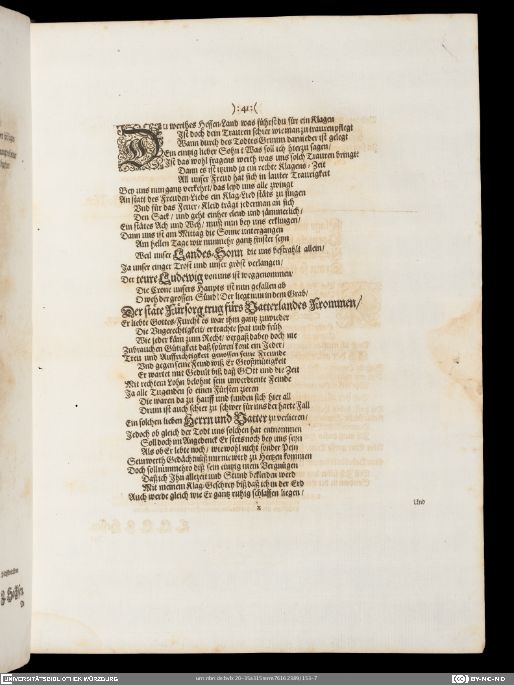 ):41:(
Du werthes Hessen-Land was führstdu für ein Klagen
Ist doch dein Trauren schier wie man zu trauren pflegt
Wann durch des Todtes Grimm darnieder ist gelegt
Ein eintzig lieber Sohn! Was soll ich hierzu sagen/
Ist das wohl fragens werth was uns solch Trauren bringt?
Dann es ist itzund ja ein rechte Klagens-Zeit
All unser Freud hat sich in lauter Traurigkeit
Bey uns nun gantz verkehrt/ das leyd uns alle zwingt
An statt des Freuden-Lieds ein Klag-Lied stäts zu singen
Und für das Feuer-Kleid trägt jederman an sich
Den Sack/ und geht einher elend und jämmerlich/
Ein stätes Ach und Weh/ muß nun bey uns erklingen/
Dann uns ist am Mittag die Sonne untergangen
Am hellen Tage wir nunmehr gantz finster seyn
Weil unser Landes-Sonn die uns bestrahlt allein/
Ja unser einger Trost und unser gröst verlangen/
Der teure Ludewig von uns ist weggenommen/
Die Crone unsers Haupts ist nun gefallen ab
O weh der grossen Sünd! Der liegt nun in dem Grab/
Der stäte Fürsorg trug fürs Vatterlandes Frommen/
Er liebte Gottes-Furcht es war ihm gantz zuwieder
Die Ungerechtigkeit/ er trachte spat und früh
Wie jeder käm zum Recht/ vergaß dabey doch nie
Zubrauchen Gütigkeit daß spüren kont ein Jeder/
Treu und Auffrichtigkeit genossen seine Freunde
Und gegen seine Feind wieß Er Großmütigkeit
Er wartet mit Gedult biß daß GOtt und die Zeit
Mit rechtem Lohn belohnt sein unverdiente Feinde
Ja alle Tugenden so einen Fürsten zieren
Die waren da zu hauff und funden sich hier all
Drum ist auch schier zu schwer für uns der harte Fall
Ein solchen lieben Herrn und Vatter zu verlieren/
Jedoch ob gleich der Todt uns solchen hat entnommen
Soll doch im Angedenck Er stets noch bey uns seyn
Als ob Er lebte noch/ wie wohl nicht sonder Pein
Sein werth Gedächtnüß mir nie wird zu Hertzen kommen
Doch soll nunmehro diß sein eintzig mein Vergnügen
Daß ich Ihn allezeit und Stund beklenden werd
Mit meinem Klag-Geschrey biß daß ich in der Erd
Auch werde gleich wie Er gantz ruhig schlaffen liegen/
x
Und
UNIVERSITÄTSBIBLIOTHEK WÜRZBURG
CC BY-NC-ND